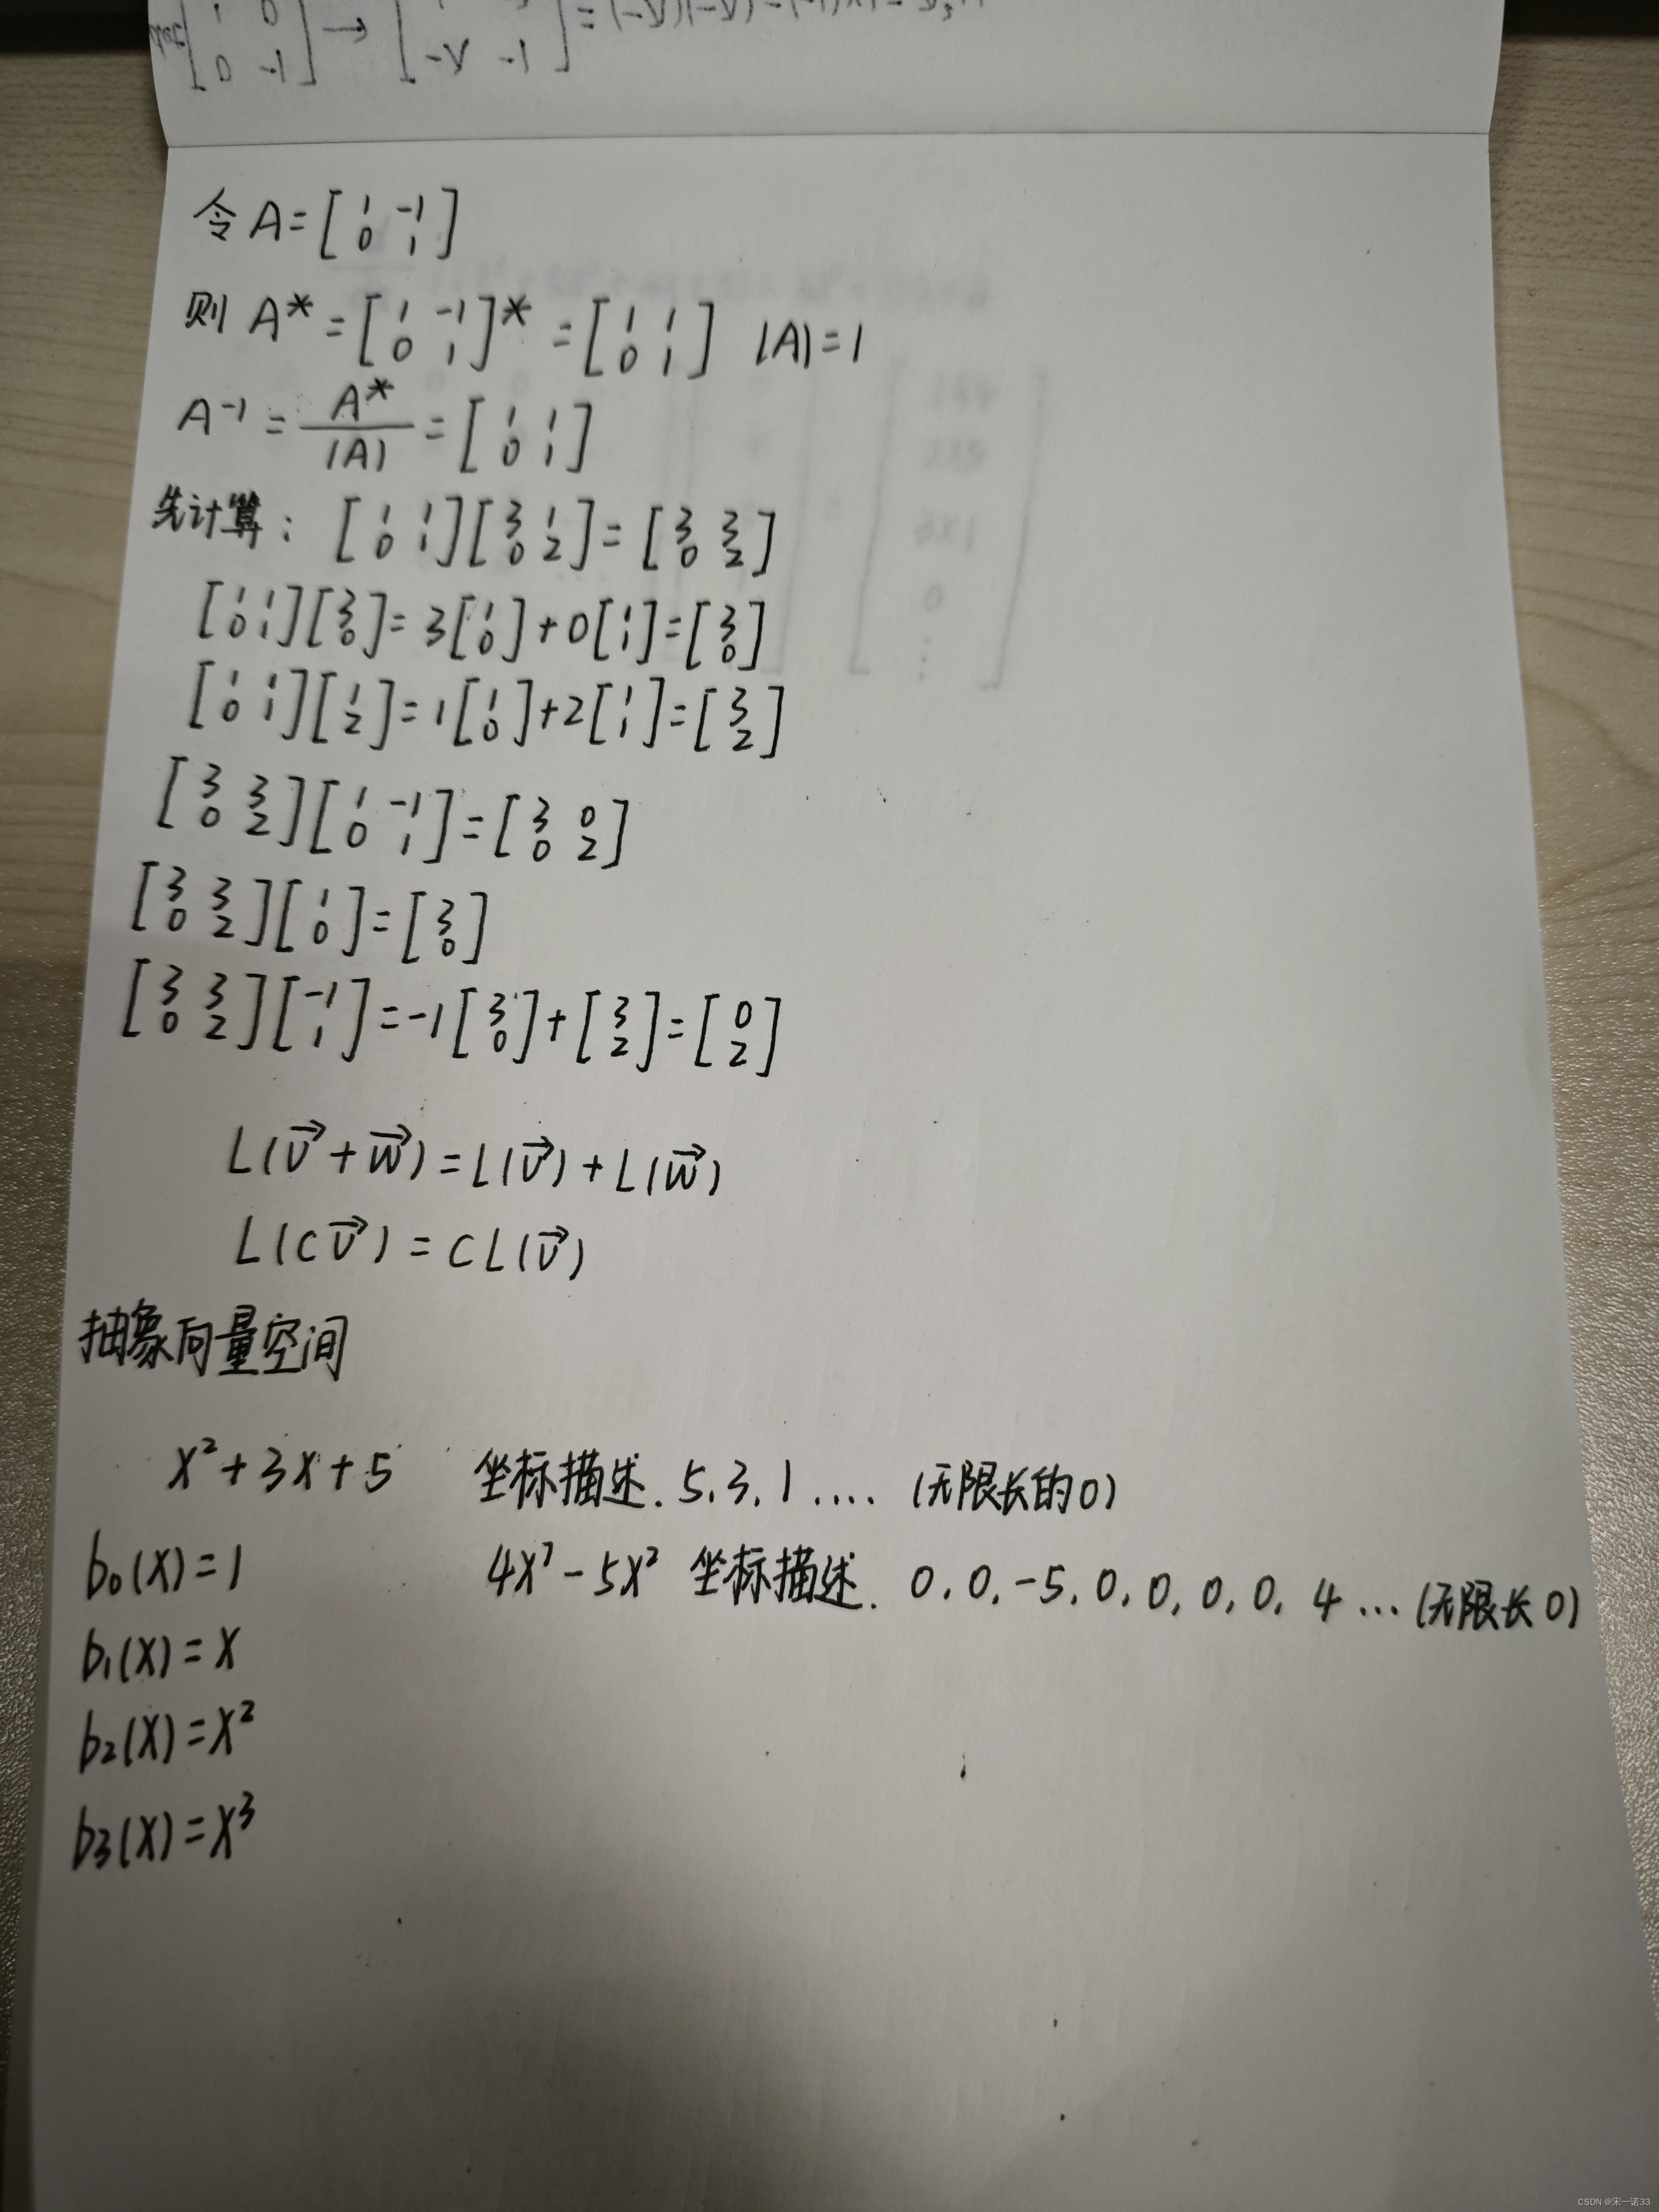 [0 -1] → [-V -1] = (-V)(-V)-(-1)×1
令 A=[1 -1; 0 1]
则 A* = [1 -1; 0 1]* = [1 1; 0 1] |A|=1
A⁻¹ = A*/|A| = [1 1; 0 1]
先计算: [1 1; 0 1][3 1; 0 2] = [3 3; 0 2]
[1 1; 0 1][3; 0] = 3[1; 0]+0[1; 1]=[3; 0]
[1 1; 0 1][1; 2] = 1[1; 0]+2[1; 1]=[3; 2]
[3 3; 0 2][1 -1; 0 1] = [3 0; 0 2]
[3 3; 0 2][1; 0] = [3; 0]
[3 3; 0 2][-1; 1] = -1[3; 0]+[3; 2]=[0; 2]
L(v⃗+w⃗)=L(v⃗)+L(w⃗)
L(cv⃗)=cL(v⃗)
抽象向量空间
x²+3x+5 坐标描述. 5,3,1.... (无限长的0)
b₀(x)=1 4x⁷-5x² 坐标描述. 0,0,-5,0,0,0,0,4...(无限长0)
b₁(x)=x
b₂(x)=x²
b₃(x)=x³
CSDN @宋一诺33